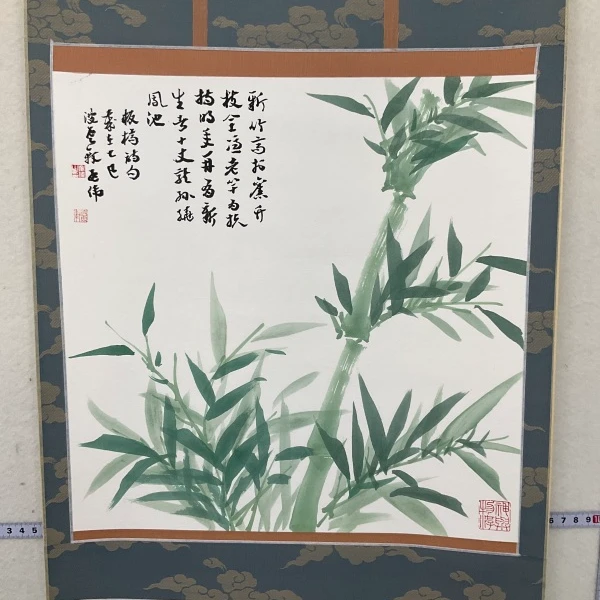 新竹高於舊竹
枝全憑老竿為扶
持明年再有新
生者十丈龍孫繞
鳳池
板橋詩句
3 4 5
6 7 8 9